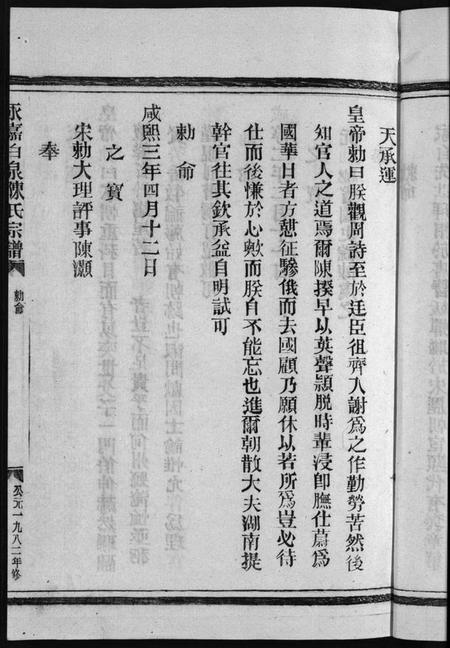 天承運
皇帝勅曰朕觀周詩至於廷臣徂齊入謝爲之作勤勞苦然後
知官人之道焉爾陳揆早以英聲頴脫時輩浸卽膴仕蔚爲
國華日者方懇征驂俄而去國顧乃願休以若所爲豈必待
仕而後慊於心歟而朕自不能忘也進爾朝散大夫湖南提
幹官往其欽承益自明試可
勅命
咸熙三年四月十二日
之寶
宋勅大理評事陳灝
奉
永嘉白泉陳氏宗譜
勅命
公元一九八二年修